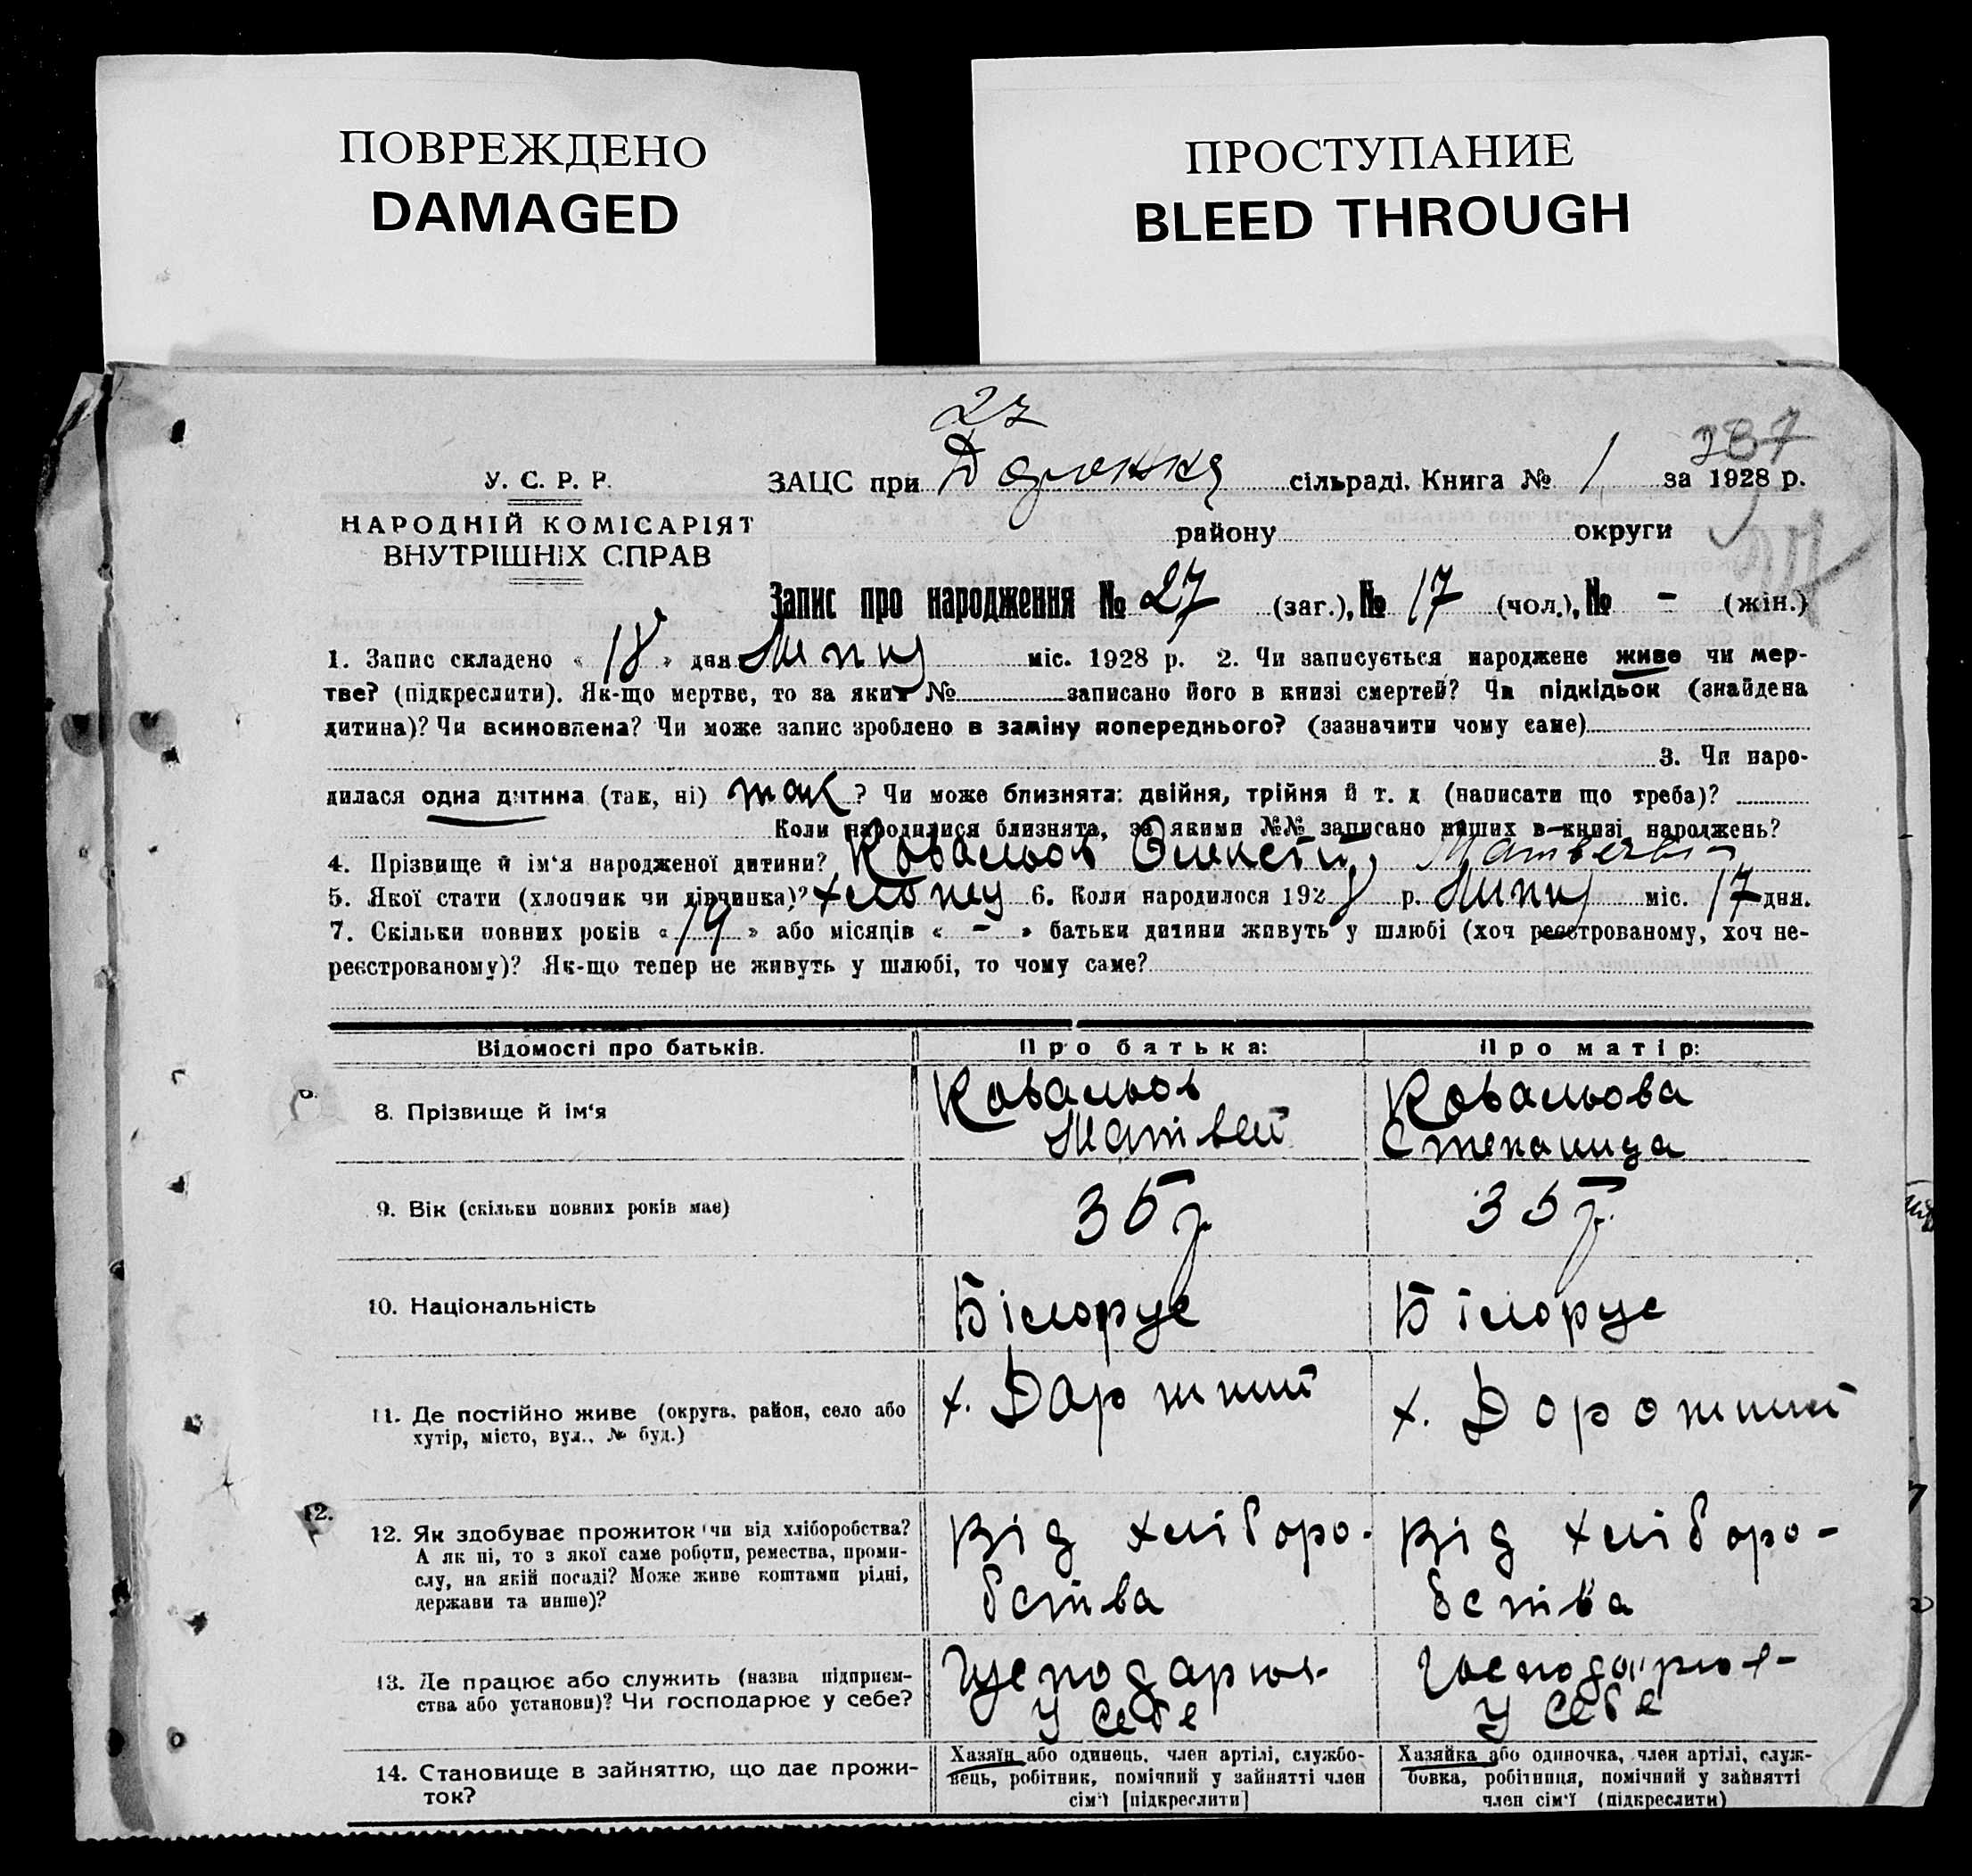 ПОВРЕЖДЕНО
DAMAGED
ПРОСТУПАНИЕ
BLEED THROUGH
27
337
У. С. Р. Р.
НАРОДНІЙ КОМІСАРІЯТ
ВНУТРІШНІХ СПРАВ
ЗАЦС при сільраді. Книга № 1 за 1928 р.
району округи
Запис про народження № 27 (заг.), № 17 (чол.), № - (жін.)
1. Запис складено « 18 » дня Липня міс. 1928 р. 2. Чи записується народжене живе чи мер-
тве? (підкреслити). Як-що мертве, то за яким № записано його в книзі смертей? Чи підкідьок (знайдена
дитина)? Чи всиновлена? Чи може запис зроблено в заміну попереднього? (зазначити чому саме)
3. Чи наро-
дилася одна дитина (так, ні) так ? Чи може близнята: двійня, трійня й т. д. (написати що треба)?
Коли народилися близнята, за якими №№ записано инших в книзі народжень?
4. Прізвище й ім'я народженої дитини? Ковальов Олексій,
5. Якої стати (хлопчик чи дівчинка)? хлопец 6. Коли народилося 1928 р. Липня міс. 17 дня.
7. Скільки повних років « 19 » або місяців « - » батьки дитини живуть у шлюбі (хоч реєстрованому, хоч не-
реєстрованому)? Як-що тепер не живуть у шлюбі, то чому саме?
Відомості про батьків. Про батька: Про матір:
8. Прізвище й ім'я Ковальов Ковальова
Матвей Степанида
9. Вік (скільки повних років має) 35 р. 35 р.
10. Національність Білорус Білорус
11. Де постійно живе (округа, район, село або
хутір, місто, вул., № буд.)
х. Доржний х. Дорожний
12.
12. Як здобуває прожиток чи від хліборобства?
А як ні, то з якої саме роботи, ремества, проми-
слу, на якій посаді? Може живе коштами рідні,
держави та инше)?
Від хліборо- Від хліборо-
бства бства
13. Де працює або служить (назва підприєм-
ства або установи)? Чи господарює у себе?
Господарює Господарює
у себе у себе
14. Становище в зайняттю, що дає прожи-
ток?
Хазяїн або одинець, член артілі, службо-
вець, робітник, помічний у зайнятті член
сім'ї [підкреслити]
Хазяйка або одиночка, член артілі, служ-
бовка, робітниця, помічний у зайнятті
член сім'ї (підкреслити)